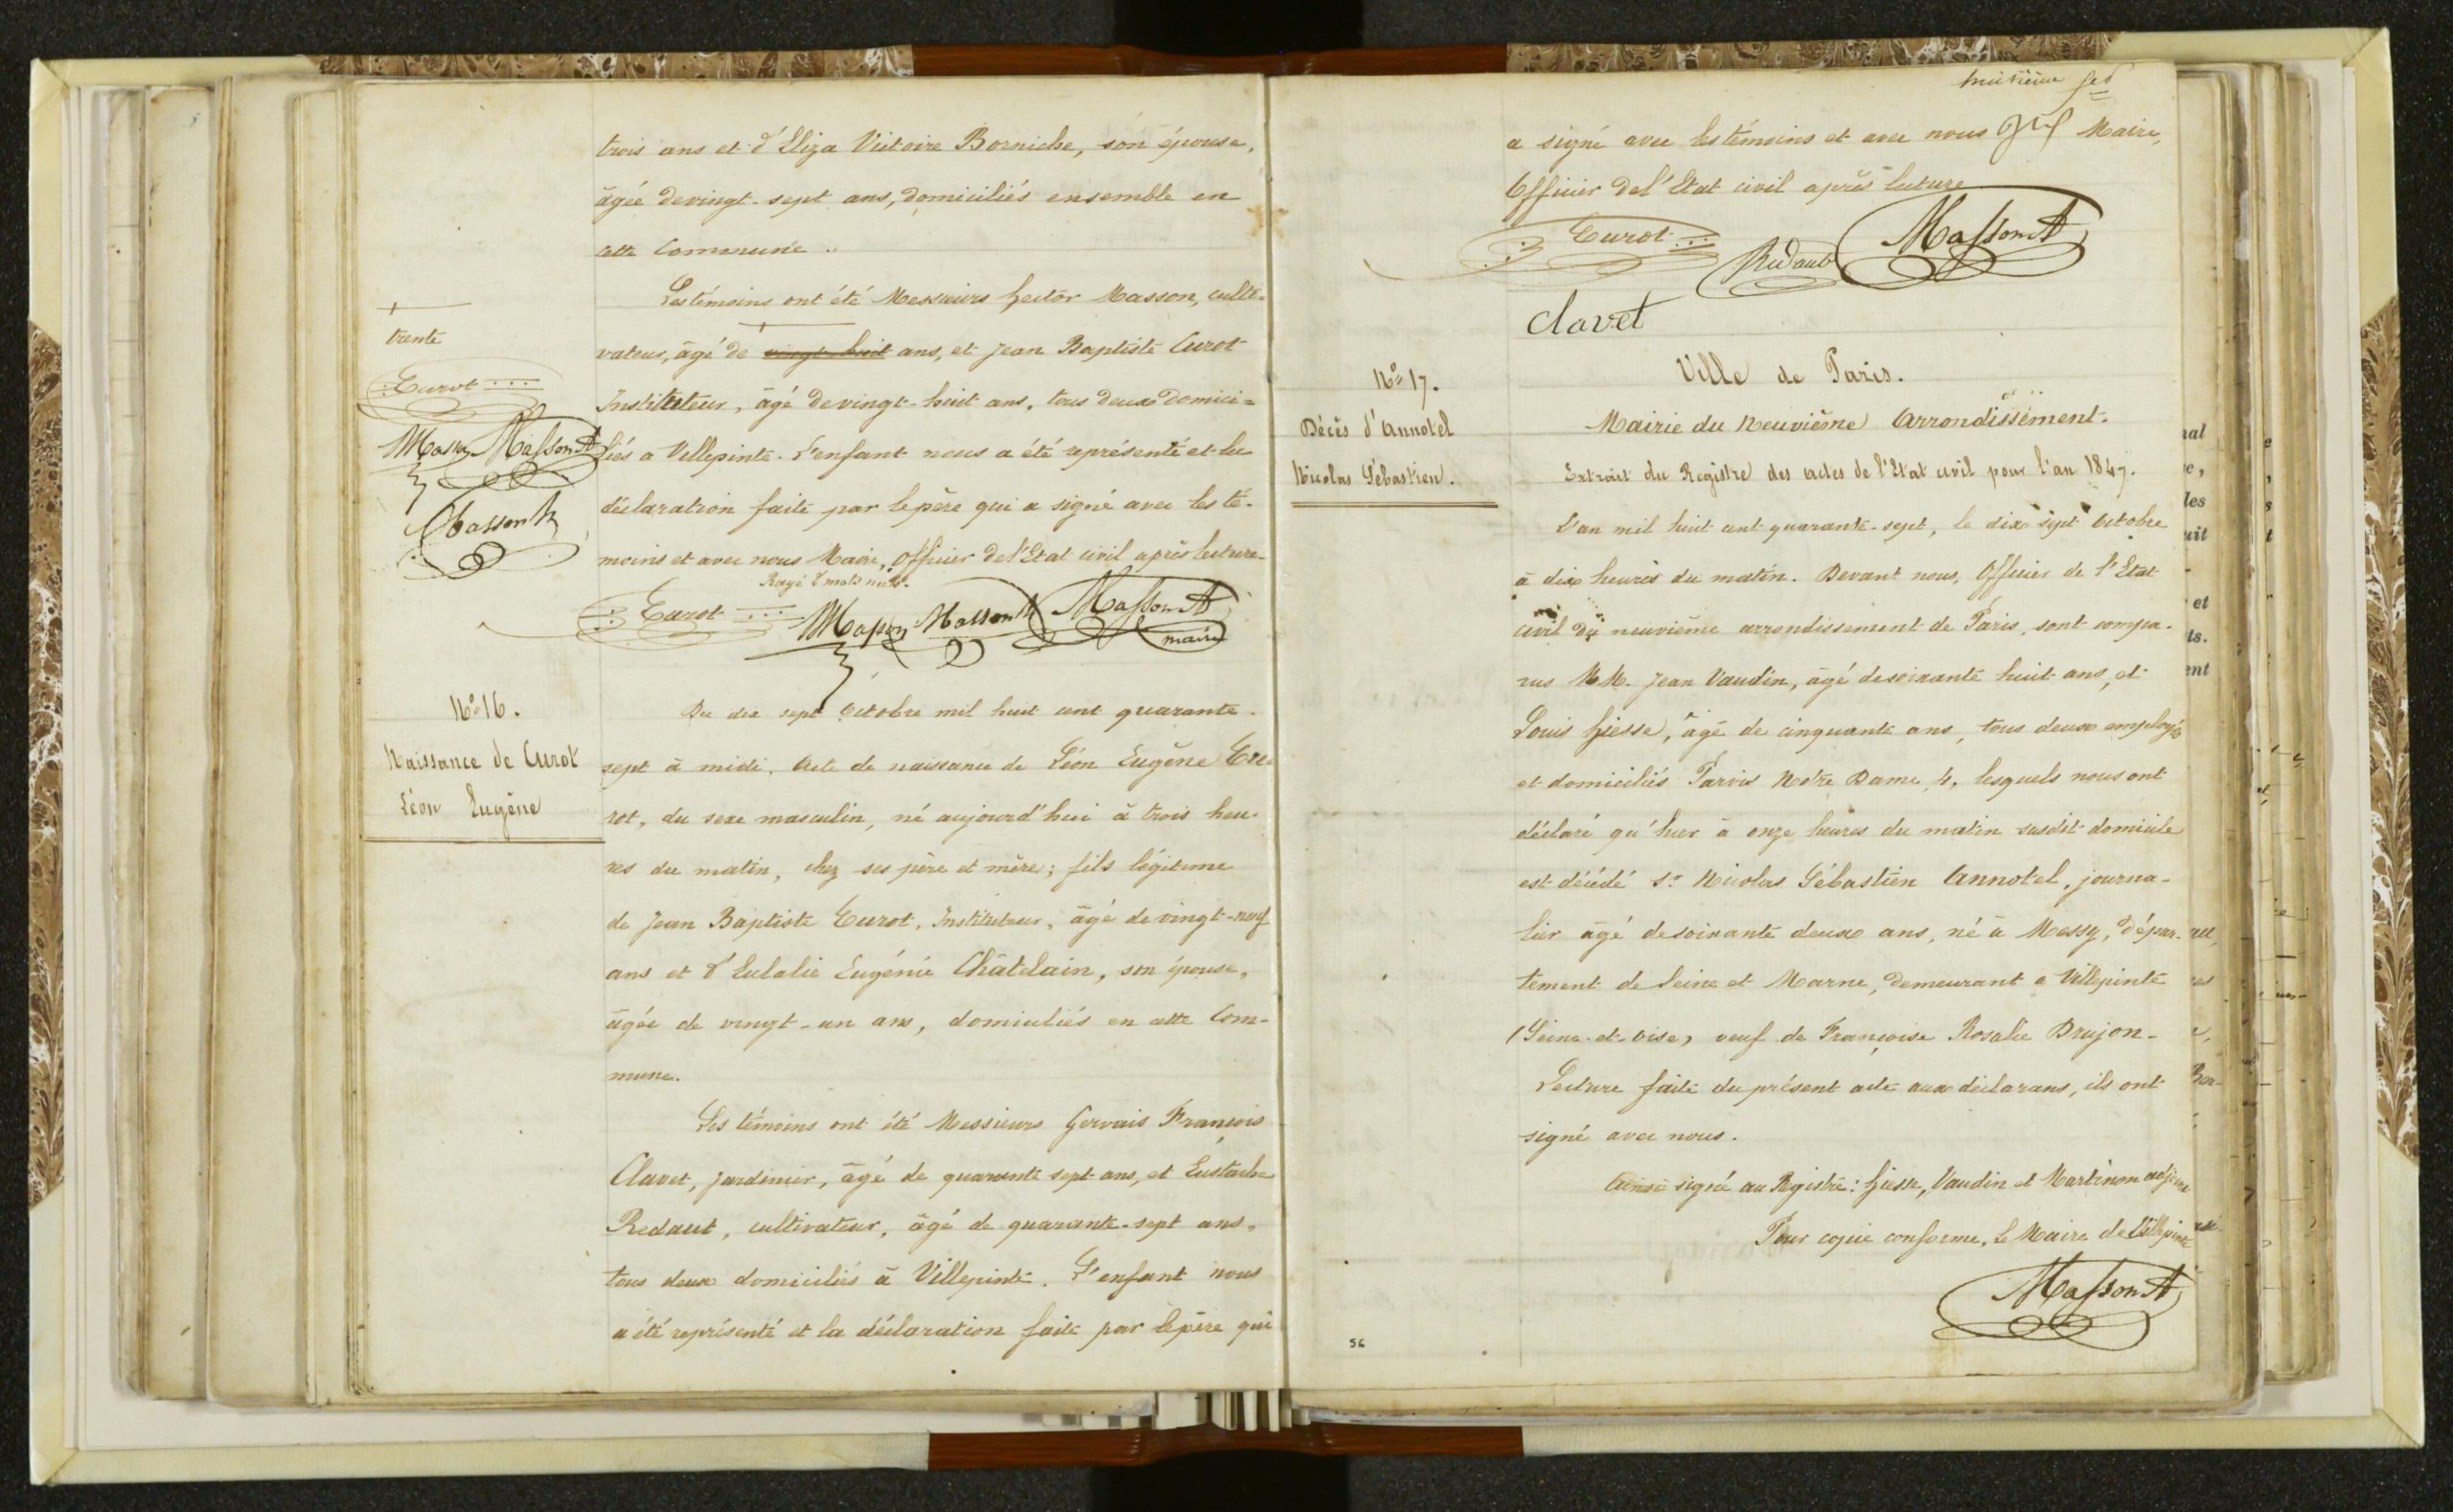 trois ans et d'Eliza Victoire Borniche, son épouse,
âgée de vingt-sept ans, domiciliés ensemble en
cette Commune.
Les témoins ont été Messieurs Hector Masson, culti=
vateur, âgé de vingt-huit ans, et Jean Baptiste Curot
Instituteur, âgé de vingt-huit ans, tous deux domici=
liés à Villepinte. L'enfant nous a été représenté et la
déclaration faite par le père qui a signé avec les té-
moins et avec nous Maire, Officier de l'Etat civil après lecture
Rayé 2 mots nuls.
Curot Masson Masson h Masson A
maire
trente
Curot
Masson Masson A
Masson h
N° 16.
Naissance de Curot
Léon Eugène
Du dix sept Octobre mil huit cent quarante-
sept à midi. Acte de naissance de Léon Eugène Cu-
rot, du sexe masculin, né aujourd'hui à trois heu-
res du matin, chez ses père et mère; fils légitime
de Jean Baptiste Curot, Instituteur, âgé de vingt-neuf
ans et d'Eulalie Eugénie Châtelain, son épouse,
âgée de vingt-un ans, domiciliés en cette Com-
mune.
Les témoins ont été Messieurs Gervais François
Clavet, jardinier, âgé de quarante sept ans, et Eustache
Redaut, cultivateur, âgé de quarante-sept ans,
tous deux domiciliés à Villepinte. L'enfant nous
a été représenté et la déclaration faite par le père qui
huitième
a signé avec les témoins et avec nous Maire,
Officier de l'Etat civil après lecture
Curot Redaut Masson A
Clavet
N° 17.
Décès d'Annotel
Nicolas Sébastien.
Ville de Paris.
Mairie du Neuvième Arrondissement.
Extrait du Registre des actes de l'Etat civil pour l'an 1847.
L'an mil huit cent quarante-sept, le dix sept Octobre
à dix heures du matin. Devant nous, Officier de l'Etat
civil du neuvième arrondissement de Paris, sont compa-
rus MM. Jean Vaudin, âgé de soixante huit ans, et
Louis Hiesse, âgé de cinquante ans, tous deux employés
et domiciliés Parvis Notre Dame, 4, lesquels nous ont
déclaré qu'hier à onze heures du matin susdit domicile
est décédé Sr Nicolas Sébastien Annotel, journa-
lier âgé de soixante deux ans, né à Messy, dépar-
tement de Seine et Marne, demeurant à Villepinte
(Seine-et-Oise) veuf de Françoise Rosalie Drujon-
Lecture faite du présent acte aux déclarans, ils ont
signé avec nous.
Ainsi signé au Registre: Hiesse, Vaudin et Martinon adjoint
Pour copie conforme, le Maire de Villepinte
Masson A
56